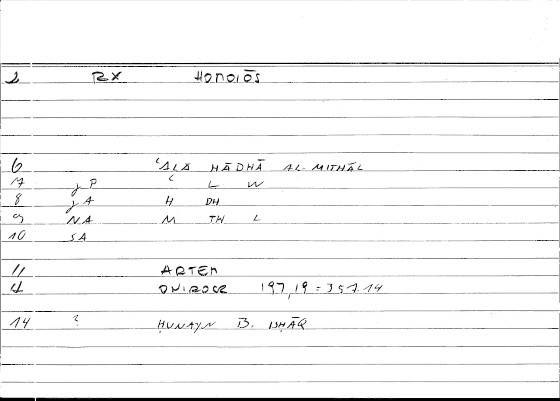 2 RX HOMOIŌS
6 ʿALĀ HĀDHĀ AL-MITHĀL
7 jP ʿ L W
8 jA H DH
9 NA M TH L
10 SA
11 ARTEM
4 ONIROCR 197,19 = 357.14
14 ? ḤUNAYN B. ISḤĀQ